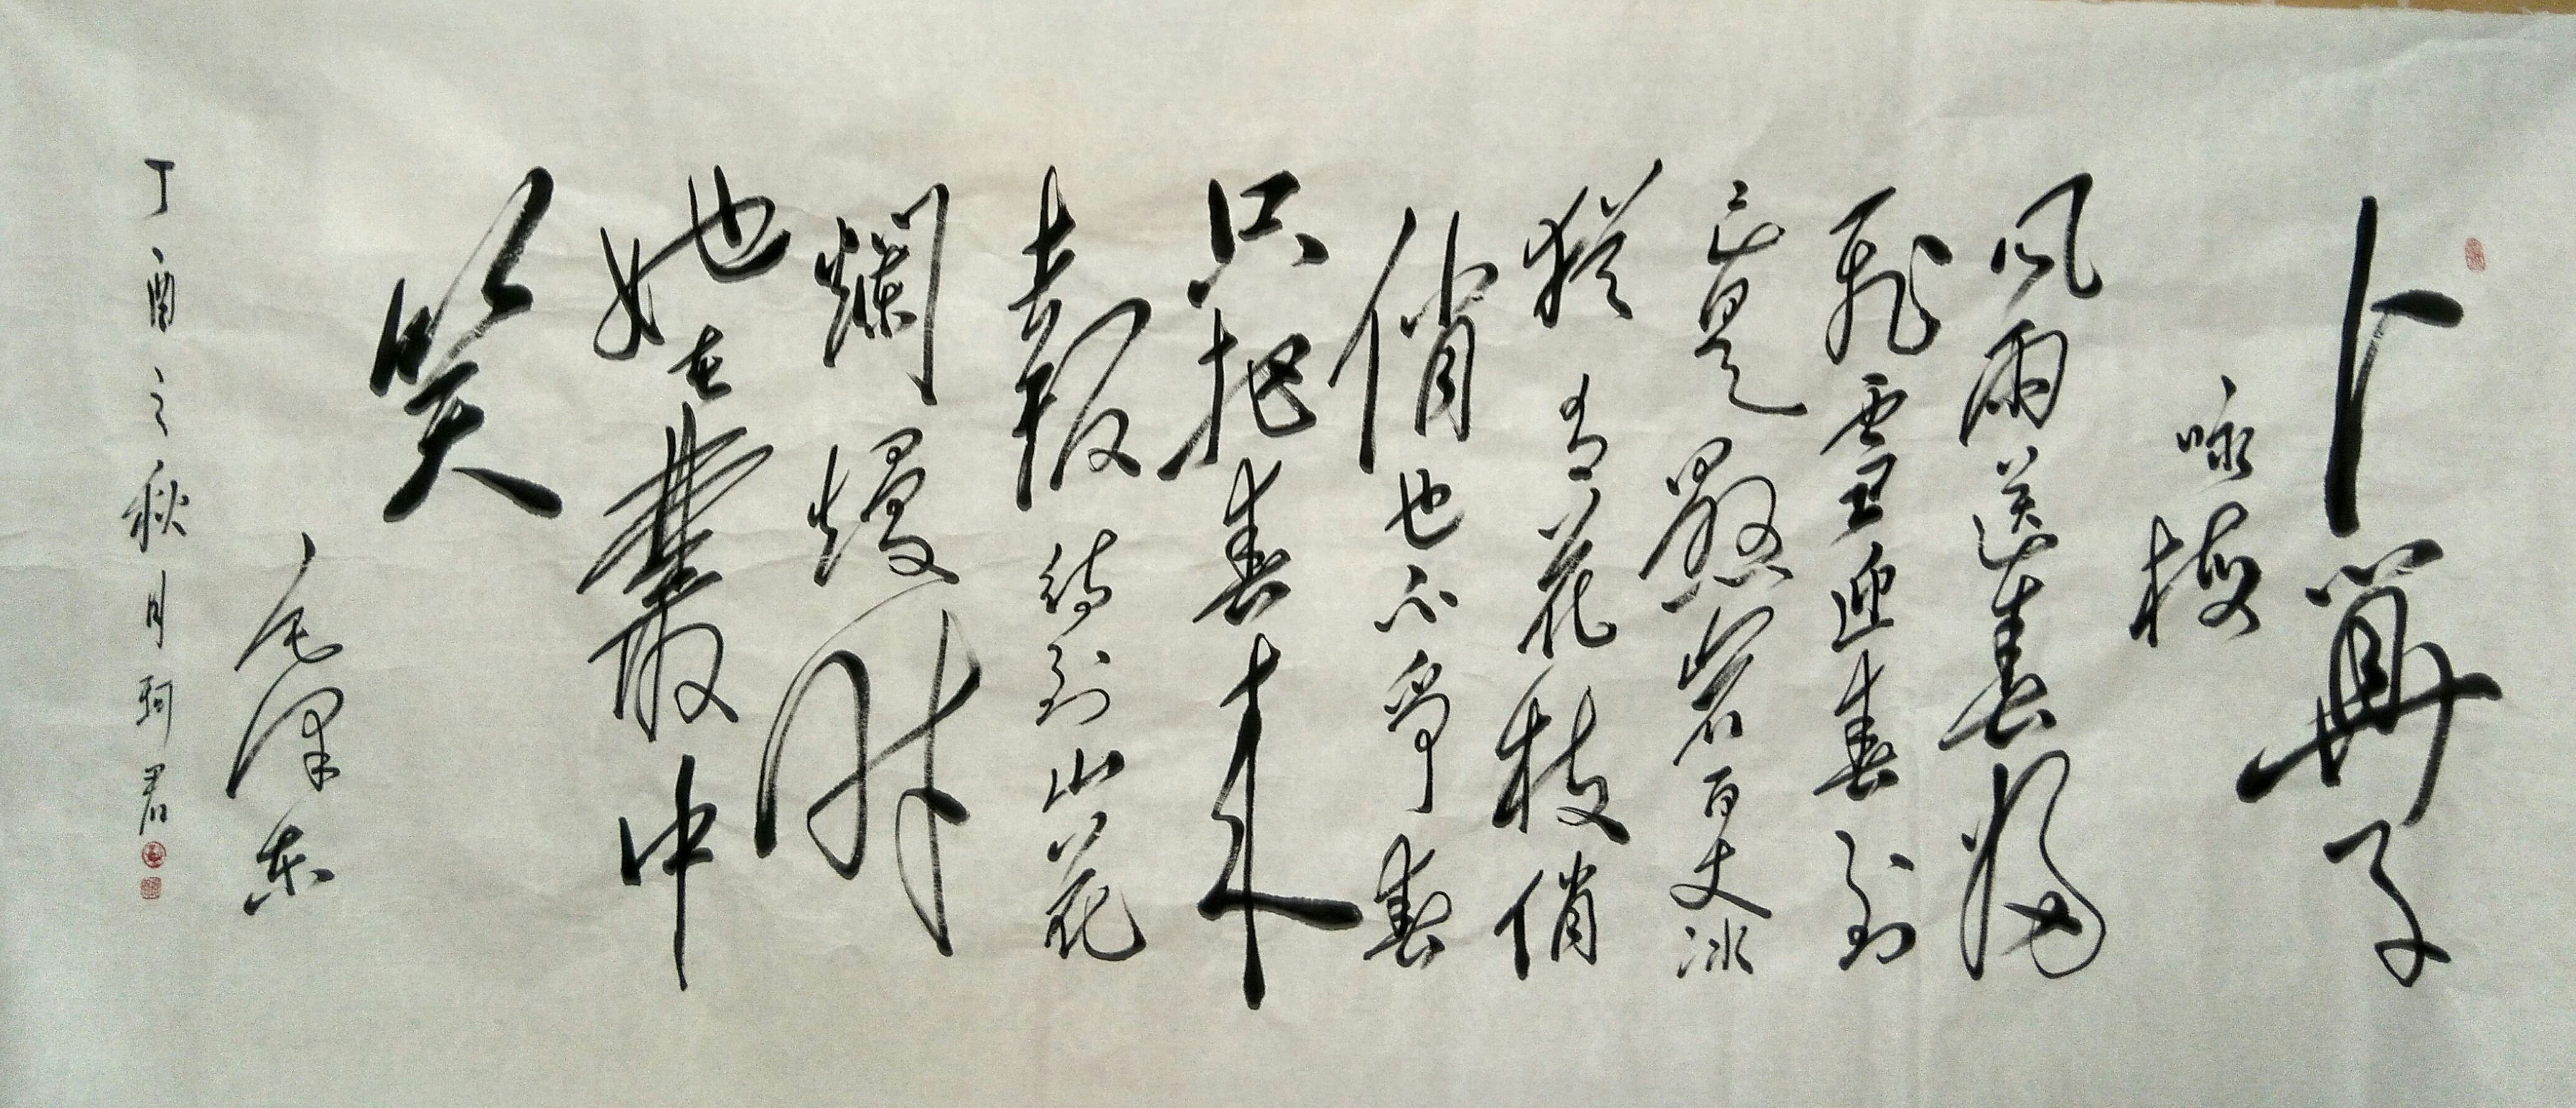 卜算子
咏梅
风雨送春归
飛雪迎春到
已是懸崖百丈冰
犹有花枝俏
俏也不争春
只把春来
春報待到山花
爛熳時
她在叢中
笑
毛泽东
丁酉之秋月珂君